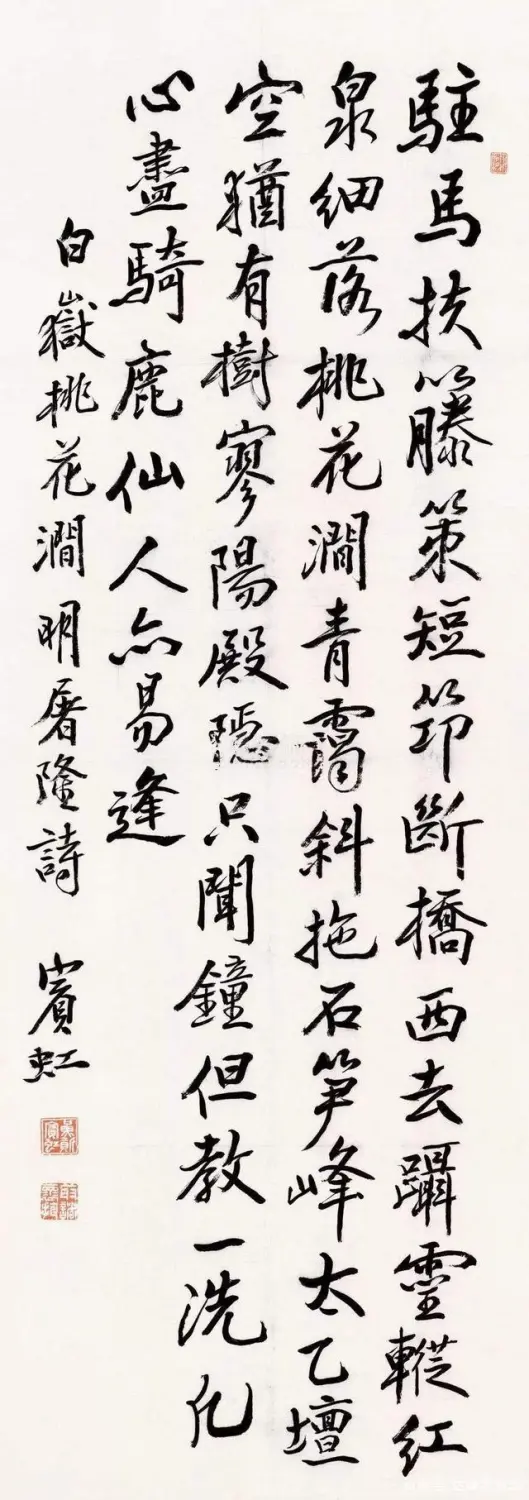 駐馬扶籐策短笻斷橋西去躡靈蹤紅
泉細落桃花澗青靄斜拖石笋峰太乙壇
空猶有樹寥陽殿隱只聞鐘但教一洗凡
心盡騎鹿仙人亦易逢
白嶽桃花澗明屠隆詩 賓虹